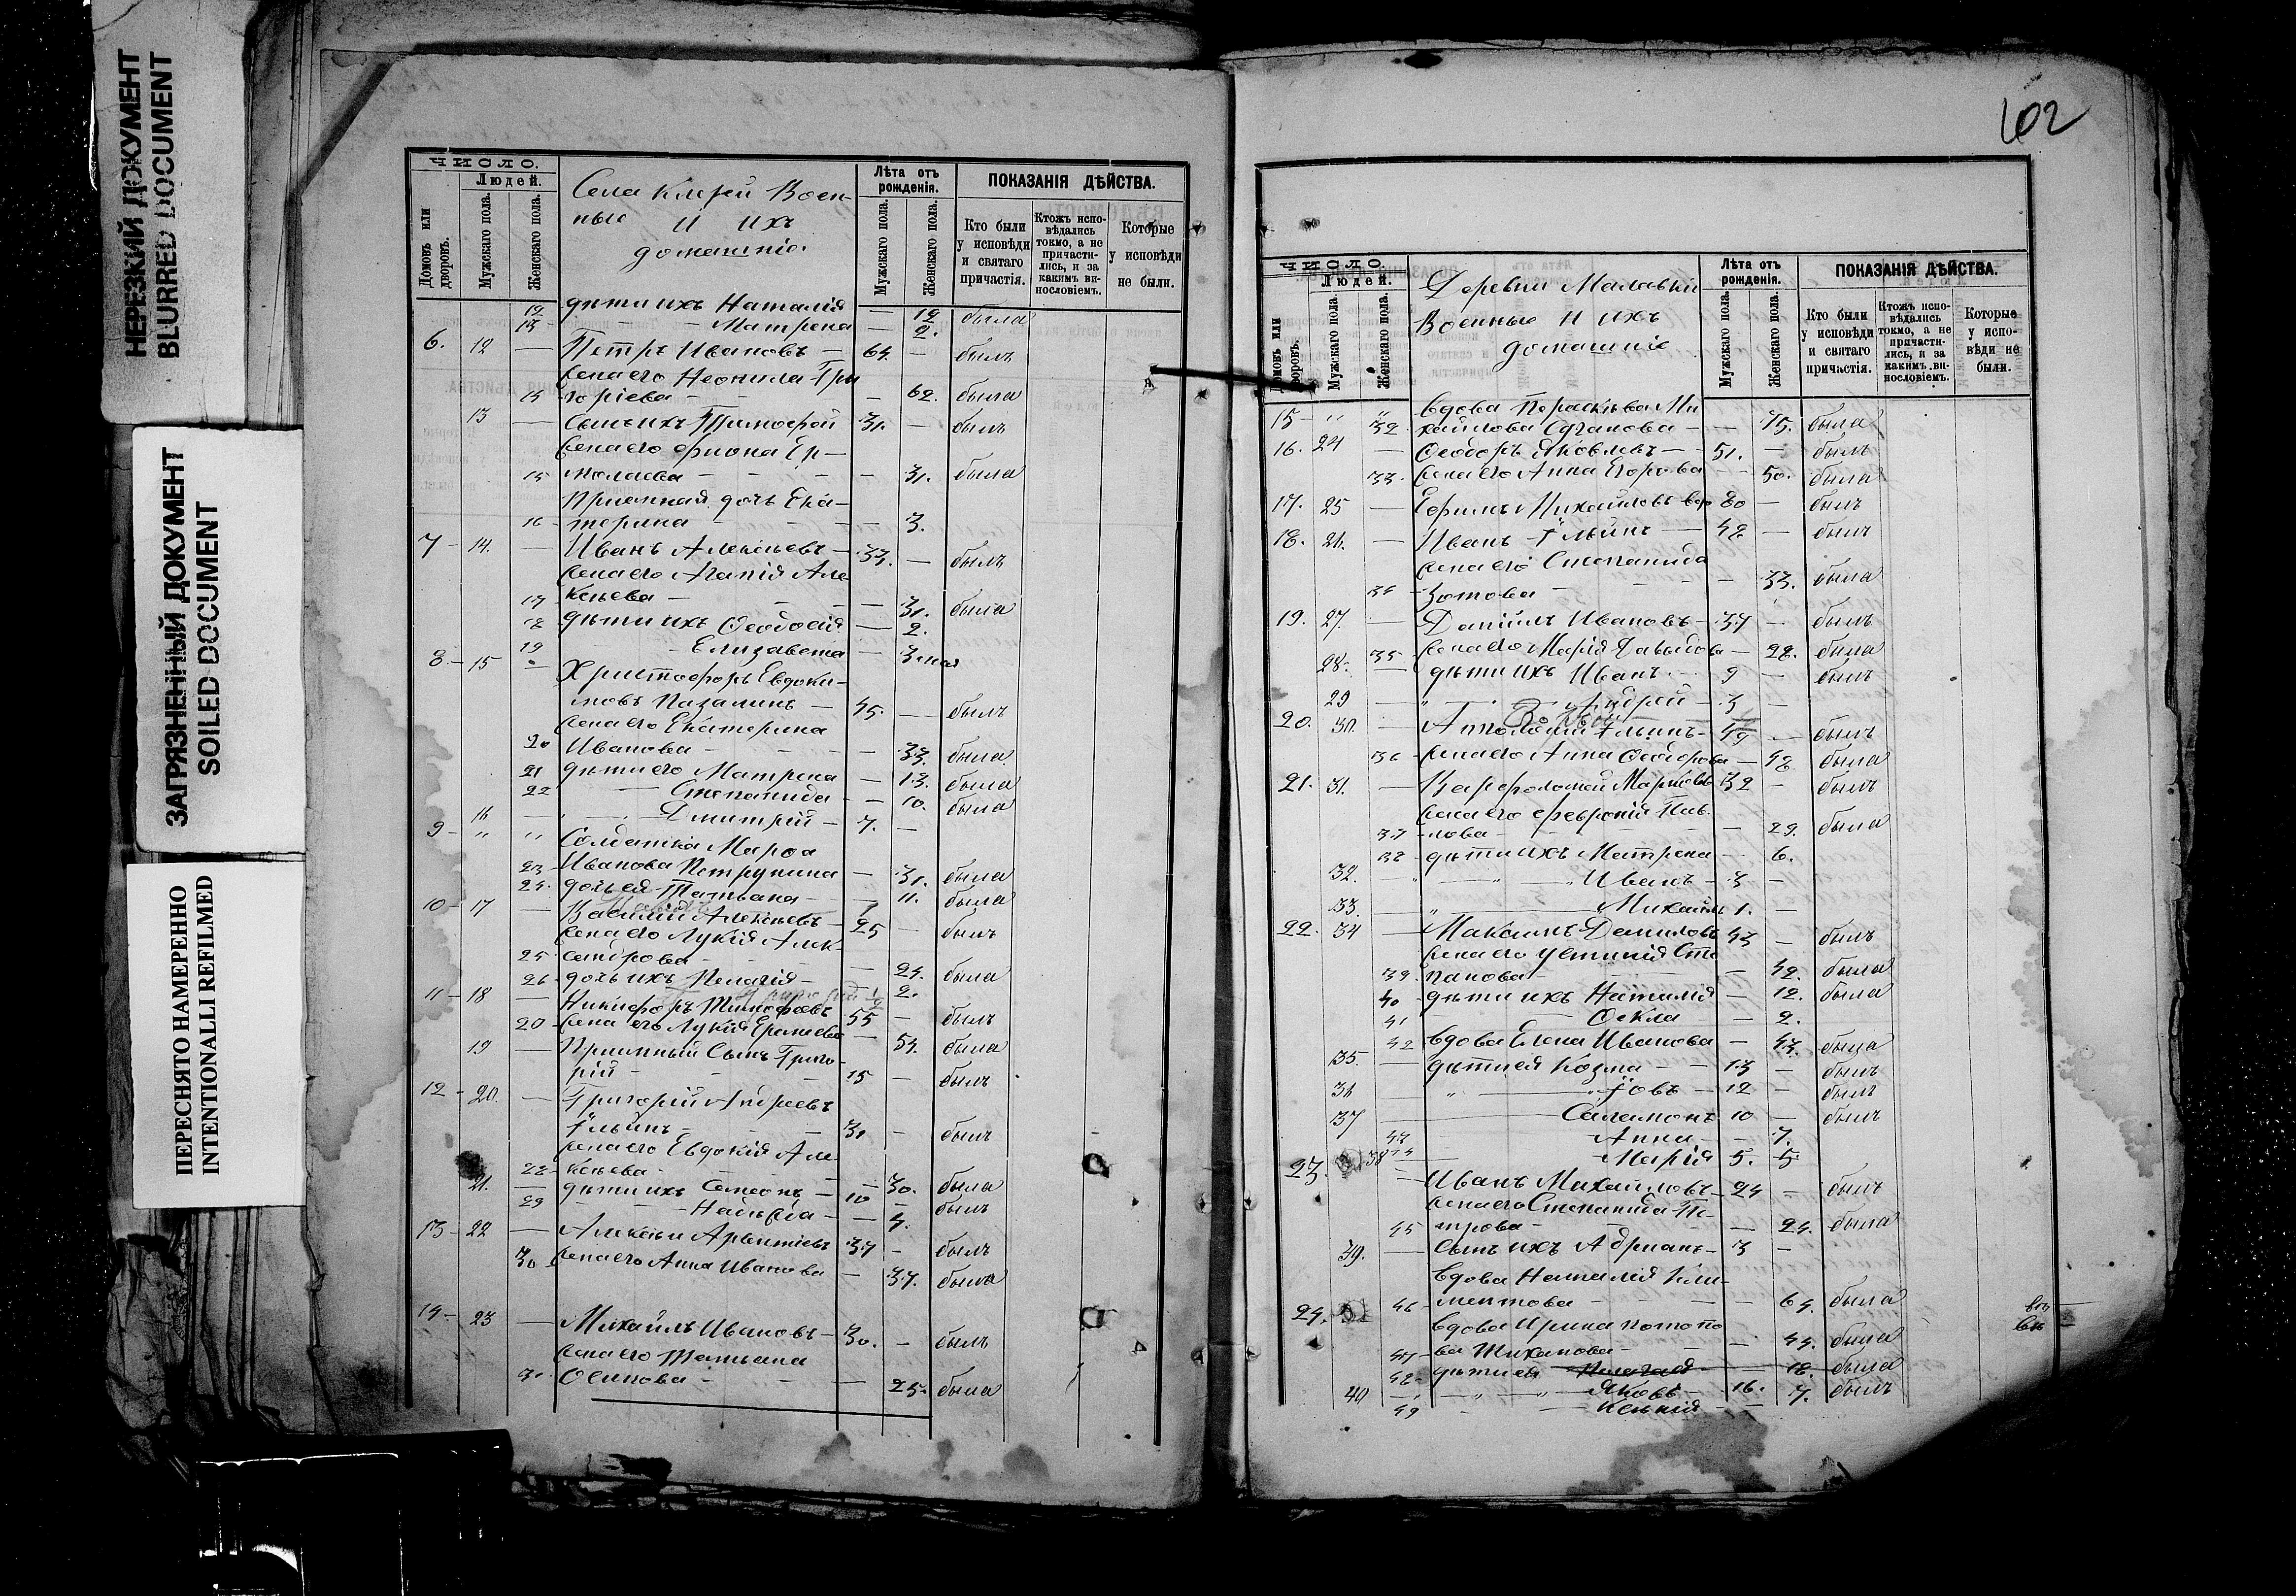 НЕРЕЗКИЙ ДОКУМЕНТ
BLURRED DOCUMENT
ЗАГРЯЗНЕННЫЙ ДОКУМЕНТ
SOILED DOCUMENT
ПЕРЕСНЯТО НАМЕРЕННО
INTENTIONALLI REFILMED
ЧИСЛО.
Людей.
Домовъ или дворовъ.
Мужскаго пола.
Женскаго пола.
Села Клерѝ Воен-
ные И ихъ
домашніе
Лѣта отъ рожденія.
Мужскаго пола.
Женскаго пола.
ПОКАЗАНІЯ ДѢЙСТВА.
Кто были у исповѣди и святаго причастія.
Ктожъ испо-вѣдались токмо, а не причасти-лись, и за какимъ ви-нословіемъ.
Которые у исповѣди не были.
12 дѣти ихъ Наталія — 12 была
13 Матрена — 2.
6. 12 — Петръ Ивановъ — 64. — былъ
Жена его Неонила Гри
14 горіева — 62. была
13 — Сынъ ихъ Тимофей 31. — былъ
15 — 31. была
Приемная дочь Ека-
16 терина — 3.
7 - 14. — Иванъ Алексѣевъ — 33. — былъ
Жена его Агапія Але
17 ксѣева — 31. была
18 дѣти ихъ Ѳеодосія — 2.
19 Елизавета —
8 - 15 — Христофоръ Евдоки-
мовъ — 45. — былъ
Жена его Екатерина
20 Иванова — 33. была
21 дѣти его Матрена — 13. была
22 Степанида — 10. была
16 Дмитрій — 7. —
9 - " " Солдатка Марѳа
23 Иванова Петрунина — 31. была
24. дочь ея Татьяна — 11. была
10 - 17 — Василій Алексѣевъ — 25 — былъ
Жена его Лукія Алек
25 сандрова — 24. была
26 дочь ихъ Пелагія — 2.
11 - 18 — Никифоръ Тимофѣевъ 55 — былъ
Жена его Лукія — 54. была
19 — Приемный Сынъ Григо-
рій — 15 — былъ
12 - 20. — Григорій Андреевъ
Ильинъ — 31 — былъ
Жена его Евдокія Але
28 ксѣева — 30. была
21. — дѣти ихъ Симеонъ — 10 — былъ
29 Надежда — 4.
13 - 22 — Алексѣй — 37 — былъ
30 Жена его Анна Иванова — 37. была
14 - 23 — Михаилъ Ивановъ — 30. — былъ
Жена его Татьяна
31 Осипова — 25. была
102
ЧИСЛО.
Людей.
Домовъ или дворовъ.
Мужскаго пола.
Женскаго пола.
Деревни
Военные И ихъ
домашніе
Лѣта отъ рожденія.
Мужскаго пола.
Женскаго пола.
ПОКАЗАНІЯ ДѢЙСТВА.
Кто были у исповѣди и святаго причастія.
Ктожъ испо-вѣдались токмо, а не причасти-лись, и за какимъ ви-нословіемъ.
Которые у испо-вѣди не были.
15 - " " Вдова Параскева Ми
32 хайлова — 75. была
16. 24 — Ѳеодоръ Яковлевъ — 51. — былъ
33. Жена его Анна Егорова — 50. была
17. 25 — Ефимъ Михайловъ вдо 80 — былъ
18. 26. — Иванъ Ильинъ — 48 — былъ
Жена его Степанида
34 Зотова — 33. была
19. 27. — Даніилъ Ивановъ — 37 — былъ
35 Жена его Марія Давыдова — 28. была
28. — дѣти ихъ Иванъ — 9 — былъ
29 Андрей — 3 —
20. 30. — Ильинъ — 49 — былъ
36 Жена его Анна Ѳеодорова — 48 была
21. 31. — Варфоломей Марковъ 32 — былъ
Жена его Февронія Пав
37 лова — 29. была
38 дѣти ихъ Матрена — 6.
32. Иванъ — 3 —
33. Михаилъ 1. —
22. 34 — Максимъ Даниловъ 43 — былъ
Жена его Устинія Сте
39. панова — 42. была
40 дѣти ихъ Наталія — 12. была
41 Ѳекла — 2.
42 Вдова Елена Иванова — 43. была
35. дѣти ея Козма — 13 — былъ
36 Іовъ — 12 — былъ
37 Саламонъ 10 — былъ
43 Анна — 7.
44 Марія 5. 5
23. 38 — Иванъ Михайловъ — 24 — былъ
Жена его Степанида Пе
45 трова — 24. была
39. — Сынъ ихъ Адріанъ — 3 —
Вдова Наталія Кли
46 ментова — 64. была
24. Вдова Ирина Потапо
47 ва Тиханова — 44. была
48 дѣти ея Пелагія — 18. была
40 Яковъ — 16. былъ
49 Ксенія — 7.